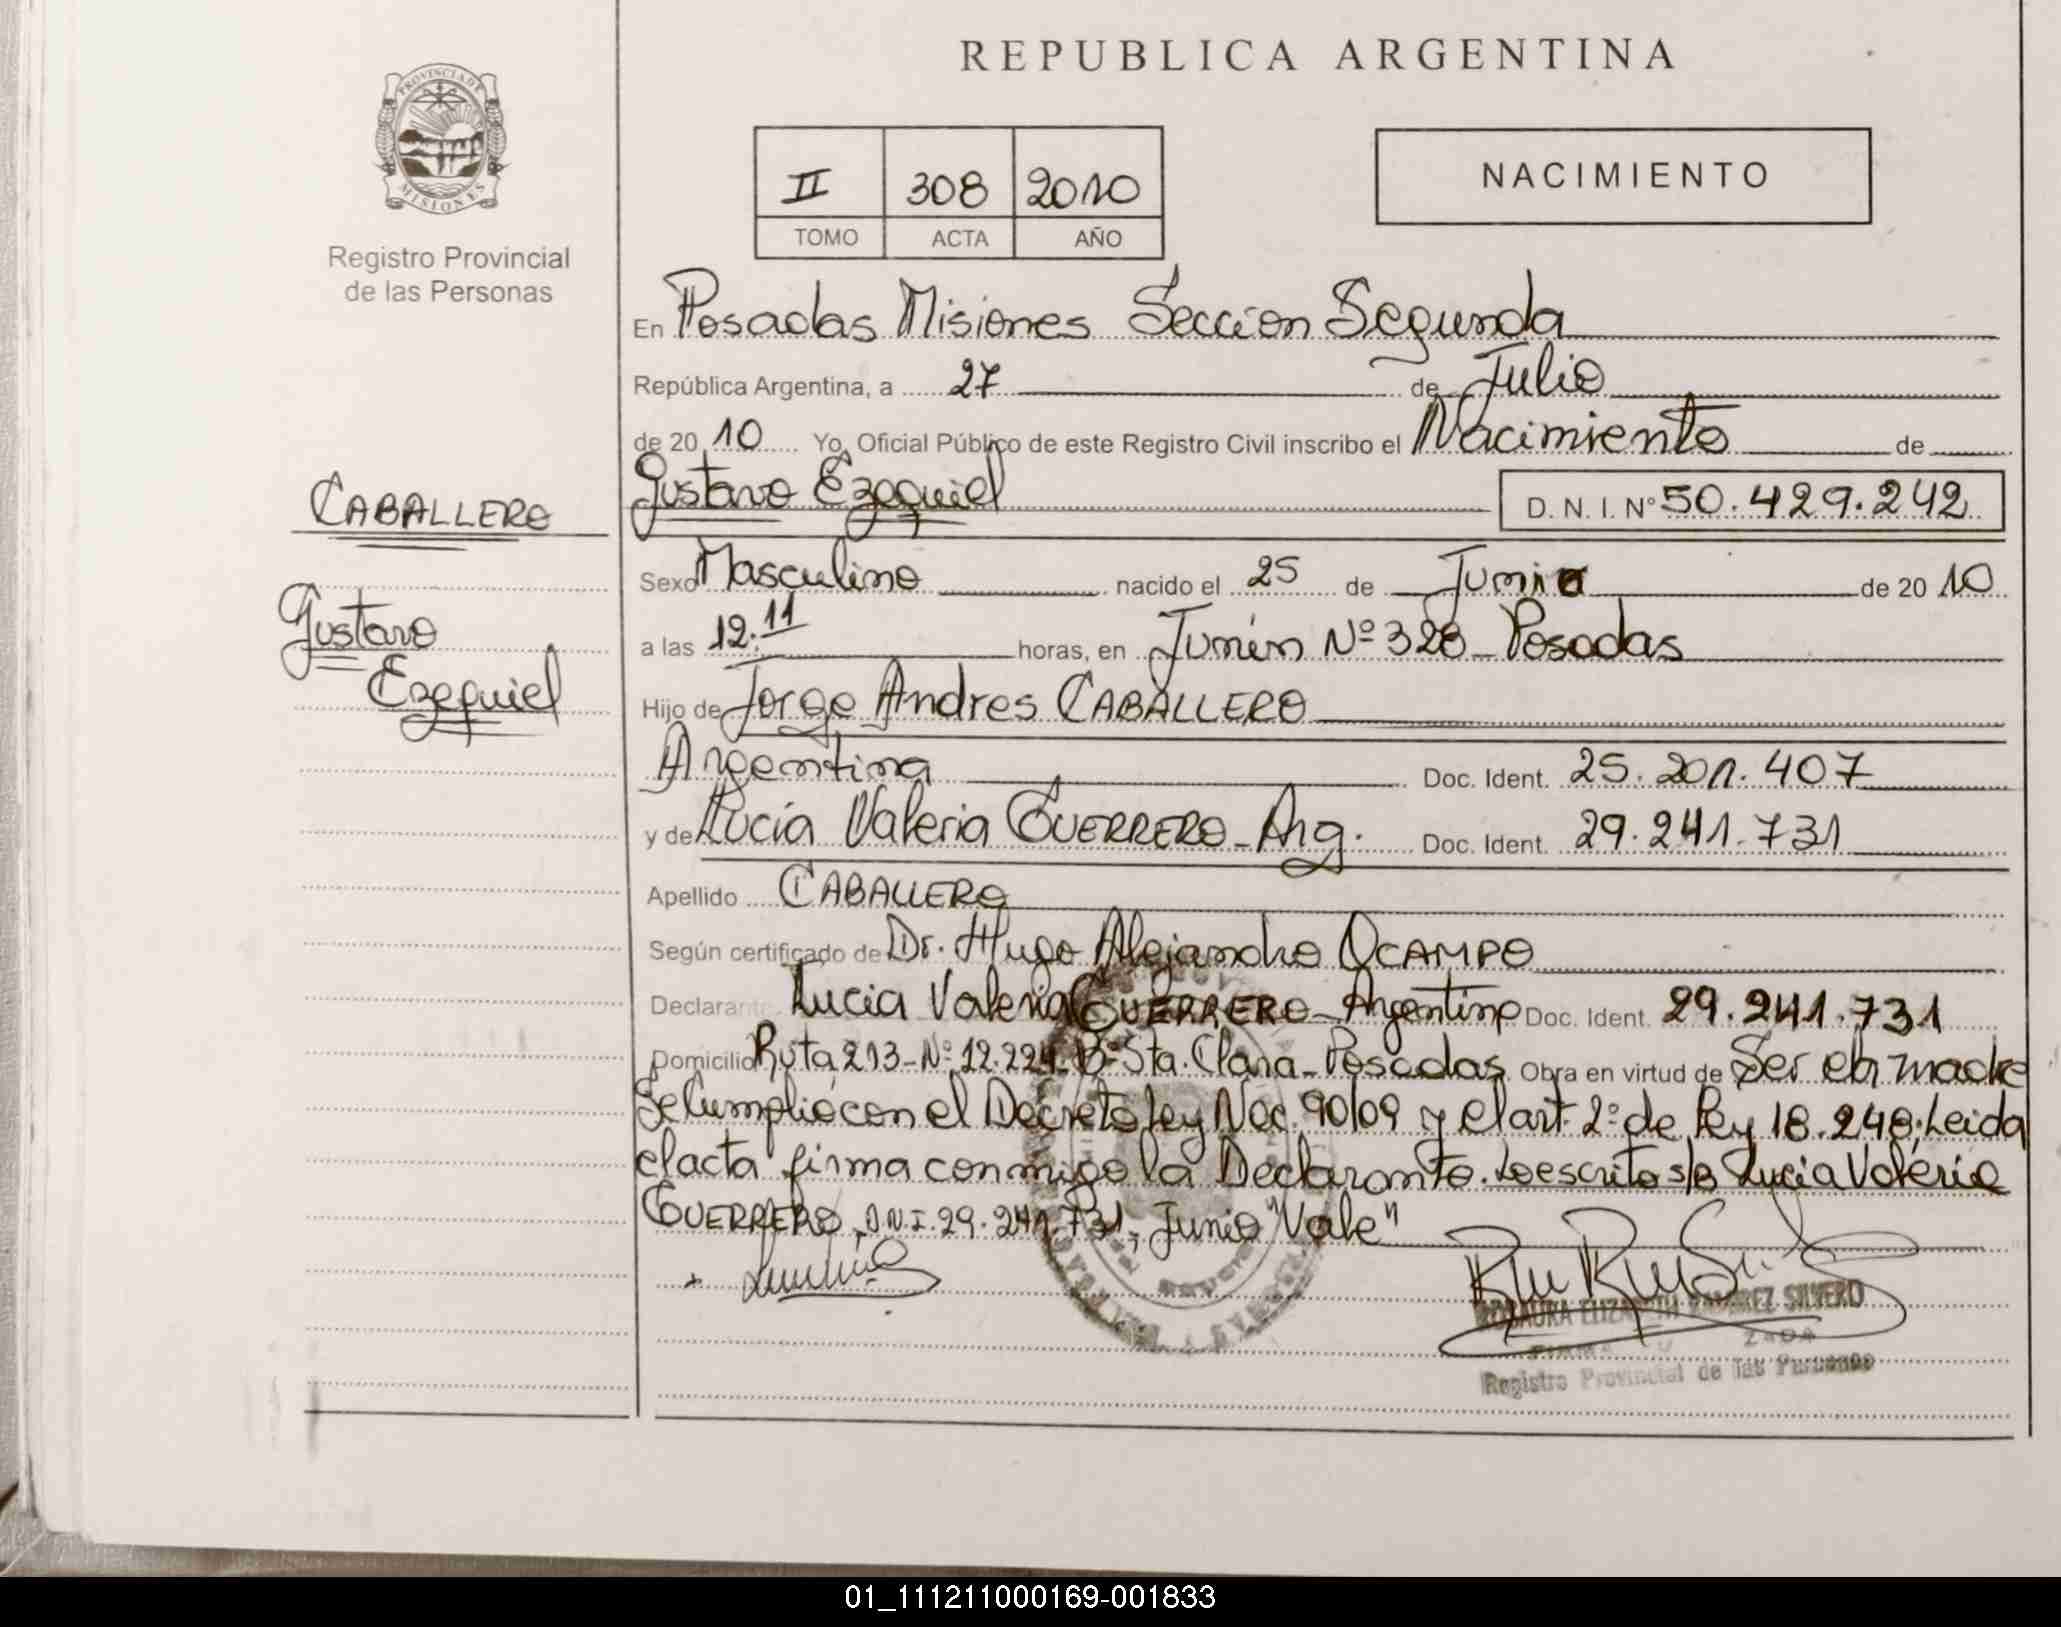 REPUBLICA ARGENTINA
PROVINCIA DE
MISIONES
Registro Provincial
de las Personas
II 308 2010
TOMO ACTA AÑO
NACIMIENTO
En Posadas Misiones Sección Segunda
República Argentina, a 27 de Julio
de 20 10 Yo, Oficial Público de este Registro Civil inscribo el Nacimiento de
Gustavo Ezequiel D. N. I. Nº 50.429.242
CABALLERO
Gustavo
Ezequiel
Sexo Masculino nacido el 25 de Junio de 20 10
a las 12.11 horas, en Junín Nº 328 - Posadas
Hijo de Jorge Andres CABALLERO
Argentina Doc. Ident. 25.201.407
y de Lucía Valeria GUERRERO - Arg. Doc. Ident. 29.241.731
Apellido CABALLERO
Según certificado de Dr. Hugo Alejandro OCAMPO
Declarante Lucia Valeria GUERRERO - Argentina Doc. Ident. 29.241.731
Domicilio Ruta 213 - Nº 12.224 Bº Sta. Clara - Posadas Obra en virtud de Ser la madre
Se Cumplió con el Decreto Ley Nac. 90/09 y el art. 2º de Ley 18.248. Leida
el acta firma conmigo la Declarante. Lo escrito s/b Lucia Valeria
GUERRERO, D.N.I. 29.241.731, Junio "Vale"
ROSAURA ELIZABETH RAMIREZ SILVERO
FIRMA
Registro Provincial de las Personas
01_111211000169-001833